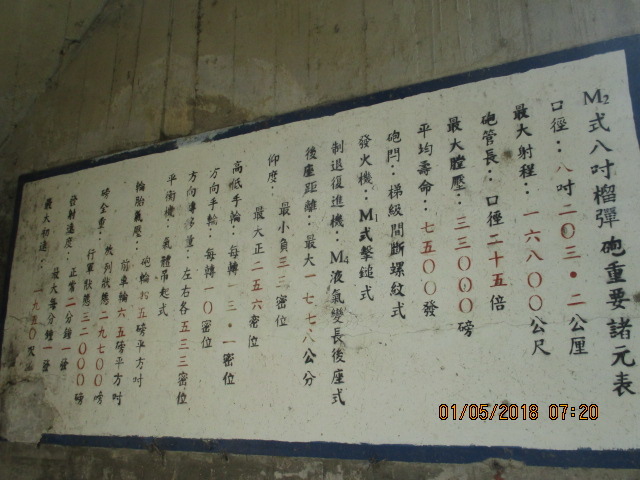 M2式八吋榴彈砲重要諸元表
口徑：八吋二〇三·二公厘
最大射程：一六八〇〇公尺
砲管長：口徑二十五倍
最大膛壓：三三〇〇〇磅
平均壽命：七五〇〇發
砲閂：梯級間斷螺紋式
發火機：M1式擊鎚式
制退復進機：M4液氣變長後座式
後座距離：最大一七七·八公分
仰度：最小負三三密位
最大正二五六密位
高低手輪：每轉一三·一密位
方向手輪：每轉一〇密位
方向轉移量：左右各五三三密位
平衡機：氣體吊起式
輪胎氣壓：砲輪 五磅平方吋
前車輪六五磅平方吋
磅全重：放列狀態二九七〇〇磅
行軍狀態三二〇〇〇磅
發射速度：正常二分鐘一發
最大每分鐘一發
最大初速：一九五〇呎
01/05/2018 07:20